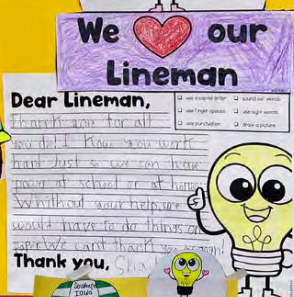 We ❤ our
Lineman
Dear Lineman,
□ use a capital letter □ sound out words
□ use finger spaces □ use sight words
□ use punctuation □ draw a picture
Thank you for all
you do! I know you work
hard Just so we can have
power at school or at home
Whithout your help, we
would have to do things on
paper We can't thank you enough!
Thank you,
Southern
Iowa